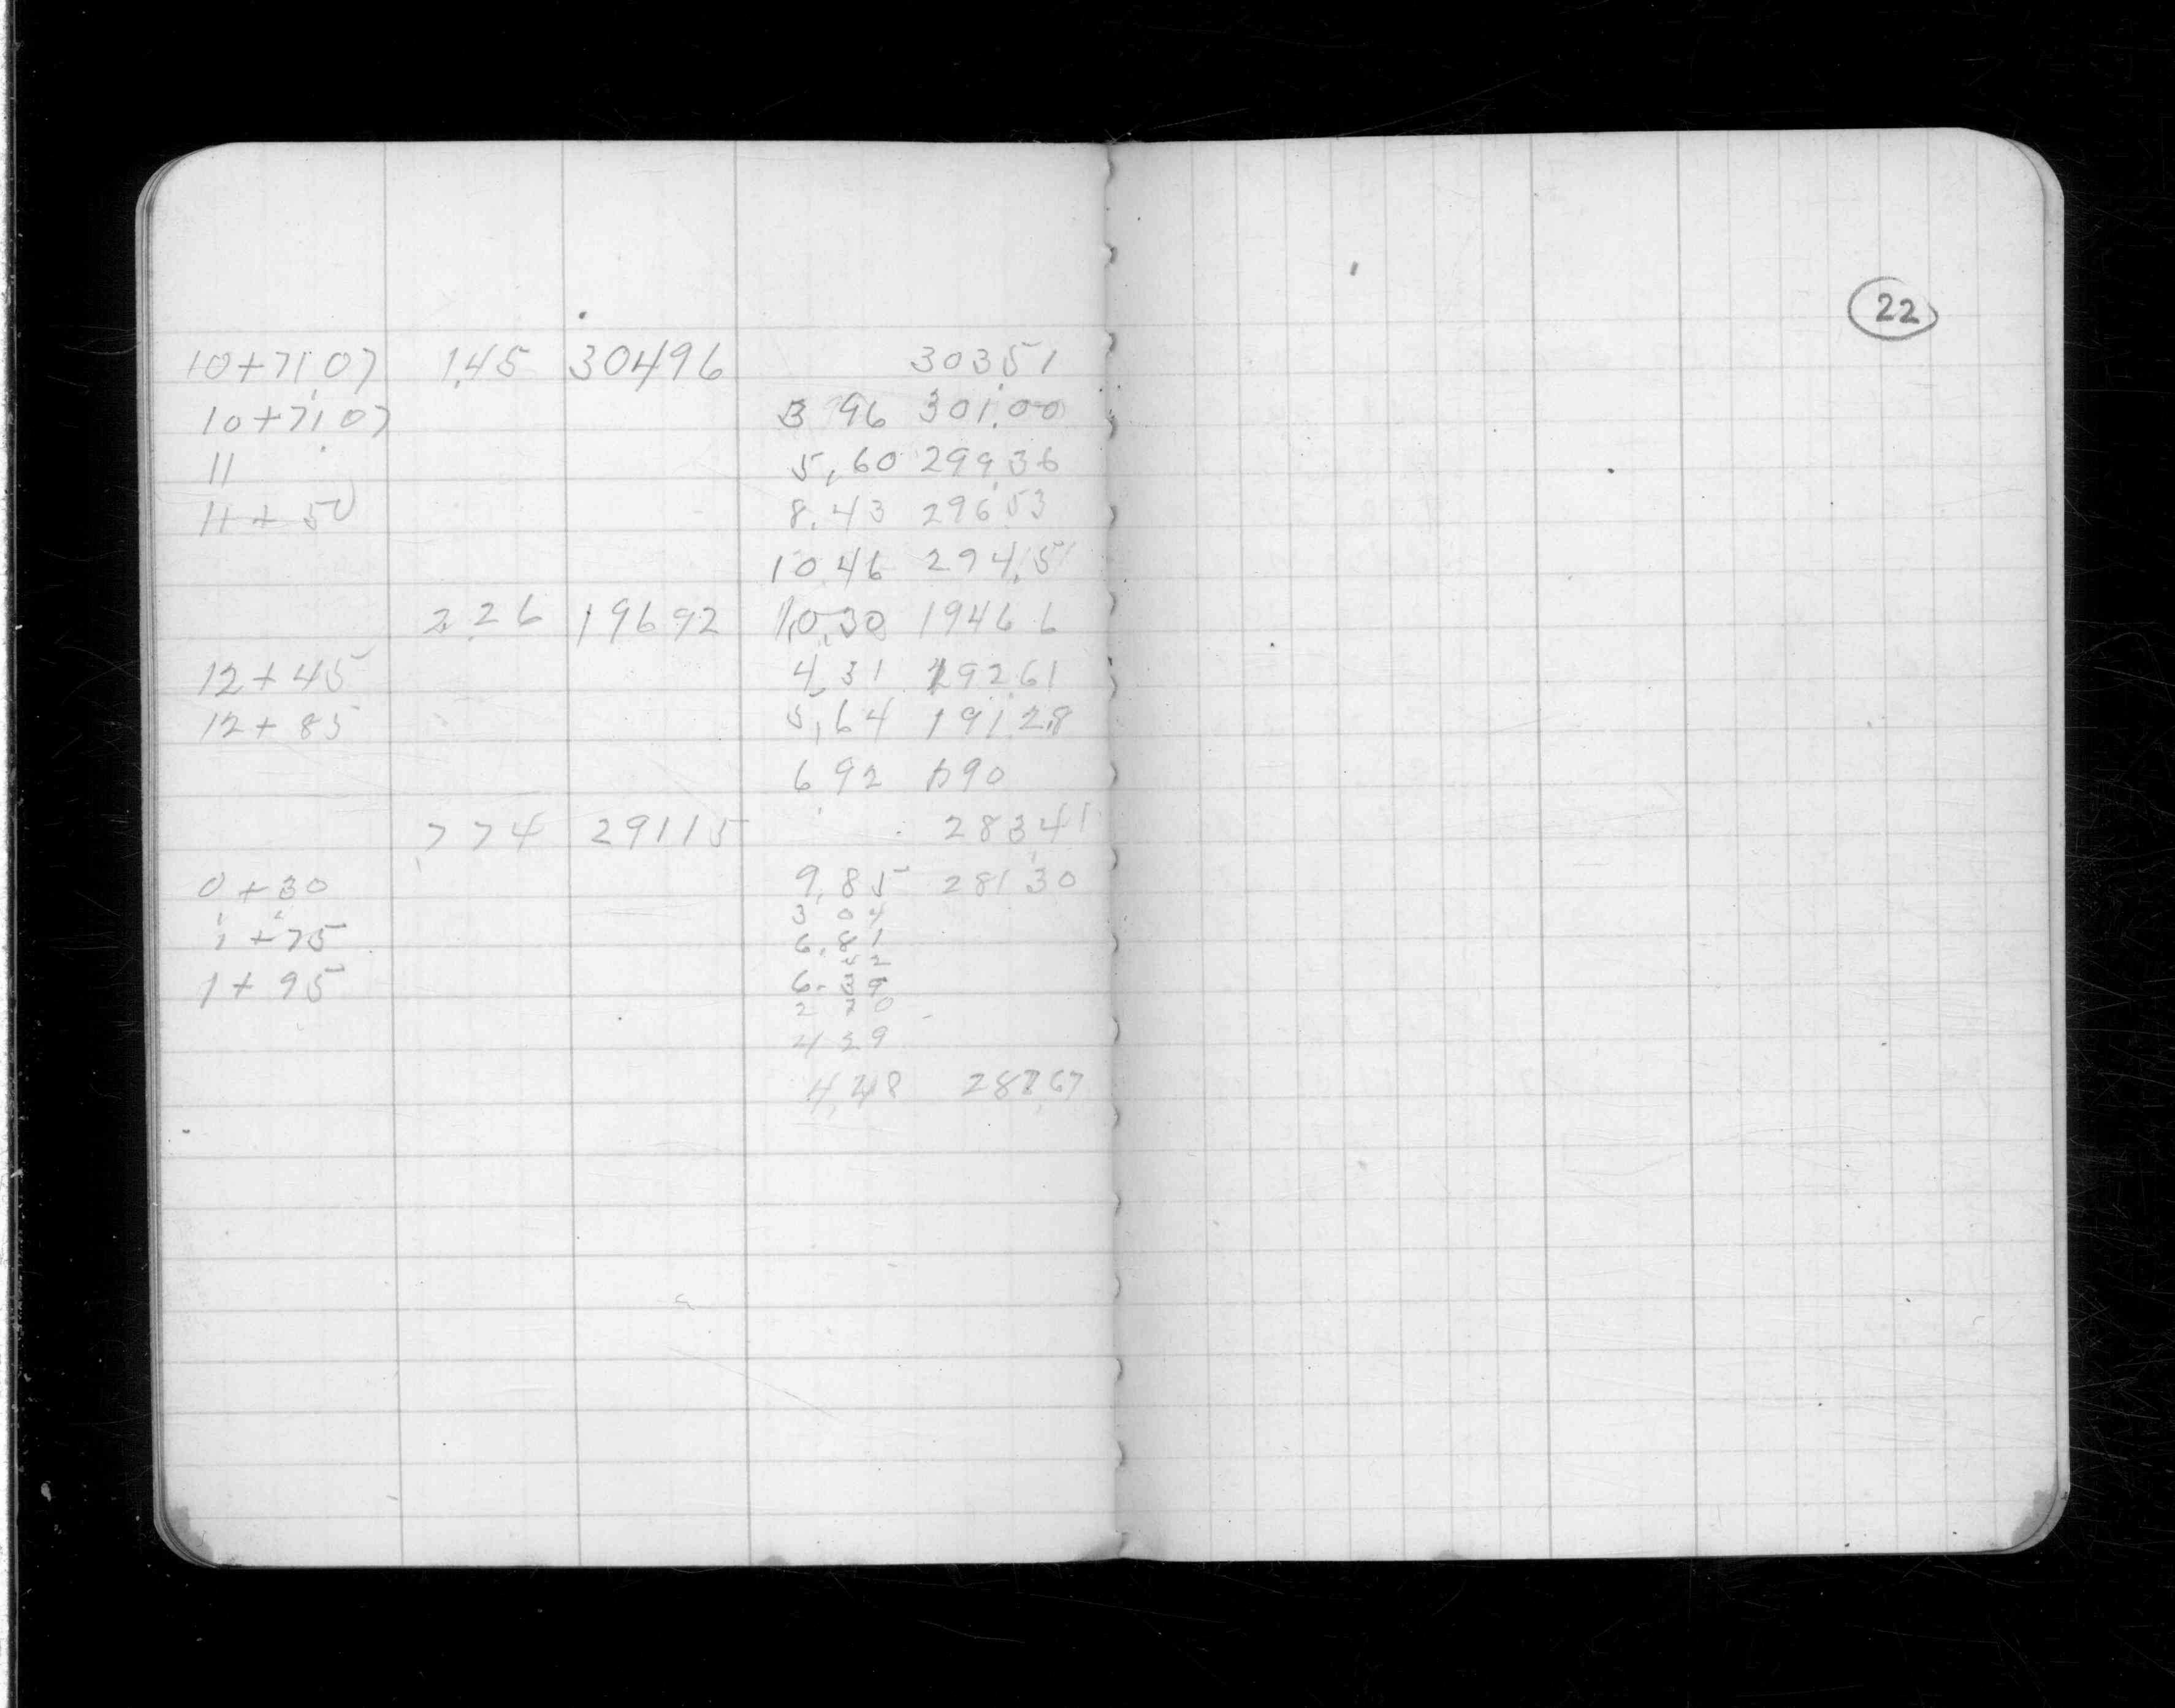 22
10+71.07 1.45 30496 303.51
10+71.07 3 96 301.00
11 5.60 299.36
11 + 50 8.43 296 53
10.46 294.51
2.26 19692 10.30 1946 6
12 + 45 4.31 292 61
12 + 85 5.64 191 28
6 92 190
7 74 29115 283.41
0 + 30 9.85 281 30
3 04
1 + 75 6.81
42
1 + 95 6.39
2 20
4 39
4.48 287.67